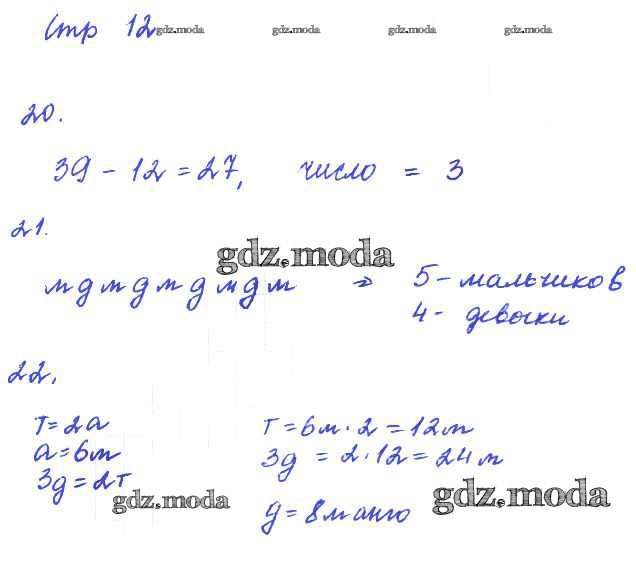 Стр 12 gdz.moda gdz.moda gdz.moda gdz.moda
20.
39 - 12 = 27, число = 3
21.
gdz.moda
м д м д м д м д м => 5 - мальчиков
4 - девочки
22.
т = 2а т = 6м · 2 = 12м
а = 6м 3д = 2 · 12 = 24м
3д = 2т
gdz.moda gdz.moda
д = 8 манго